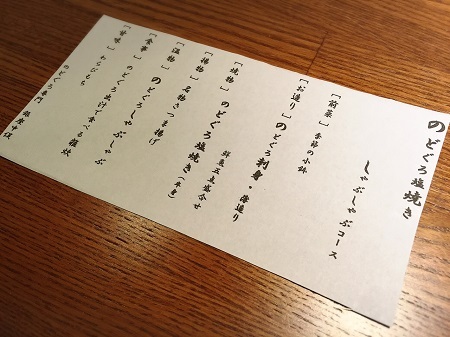 のどぐろ塩焼き
しゃぶしゃぶコース
【前菜】季節の小鉢
【お造り】のどぐろ刺身・薄造り
鮮魚五点盛合せ
【焼物】のどぐろ塩焼き(半身)
【揚物】名物さつま揚げ
【温物】のどぐろしゃぶしゃぶ
【食事】のどぐろ出汁で食べる雑炊
【甘味】わらびもち
のどぐろ専門 銀座中俣